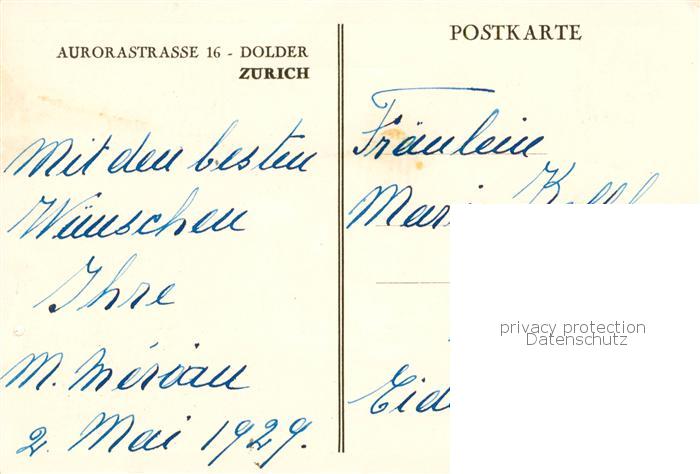 AURORASTRASSE 16 - DOLDER
ZÜRICH
Mit den besten
Wünschen
Ihre
M.
2. Mai 1929.
POSTKARTE
Fräulein
privacy protection
Datenschutz